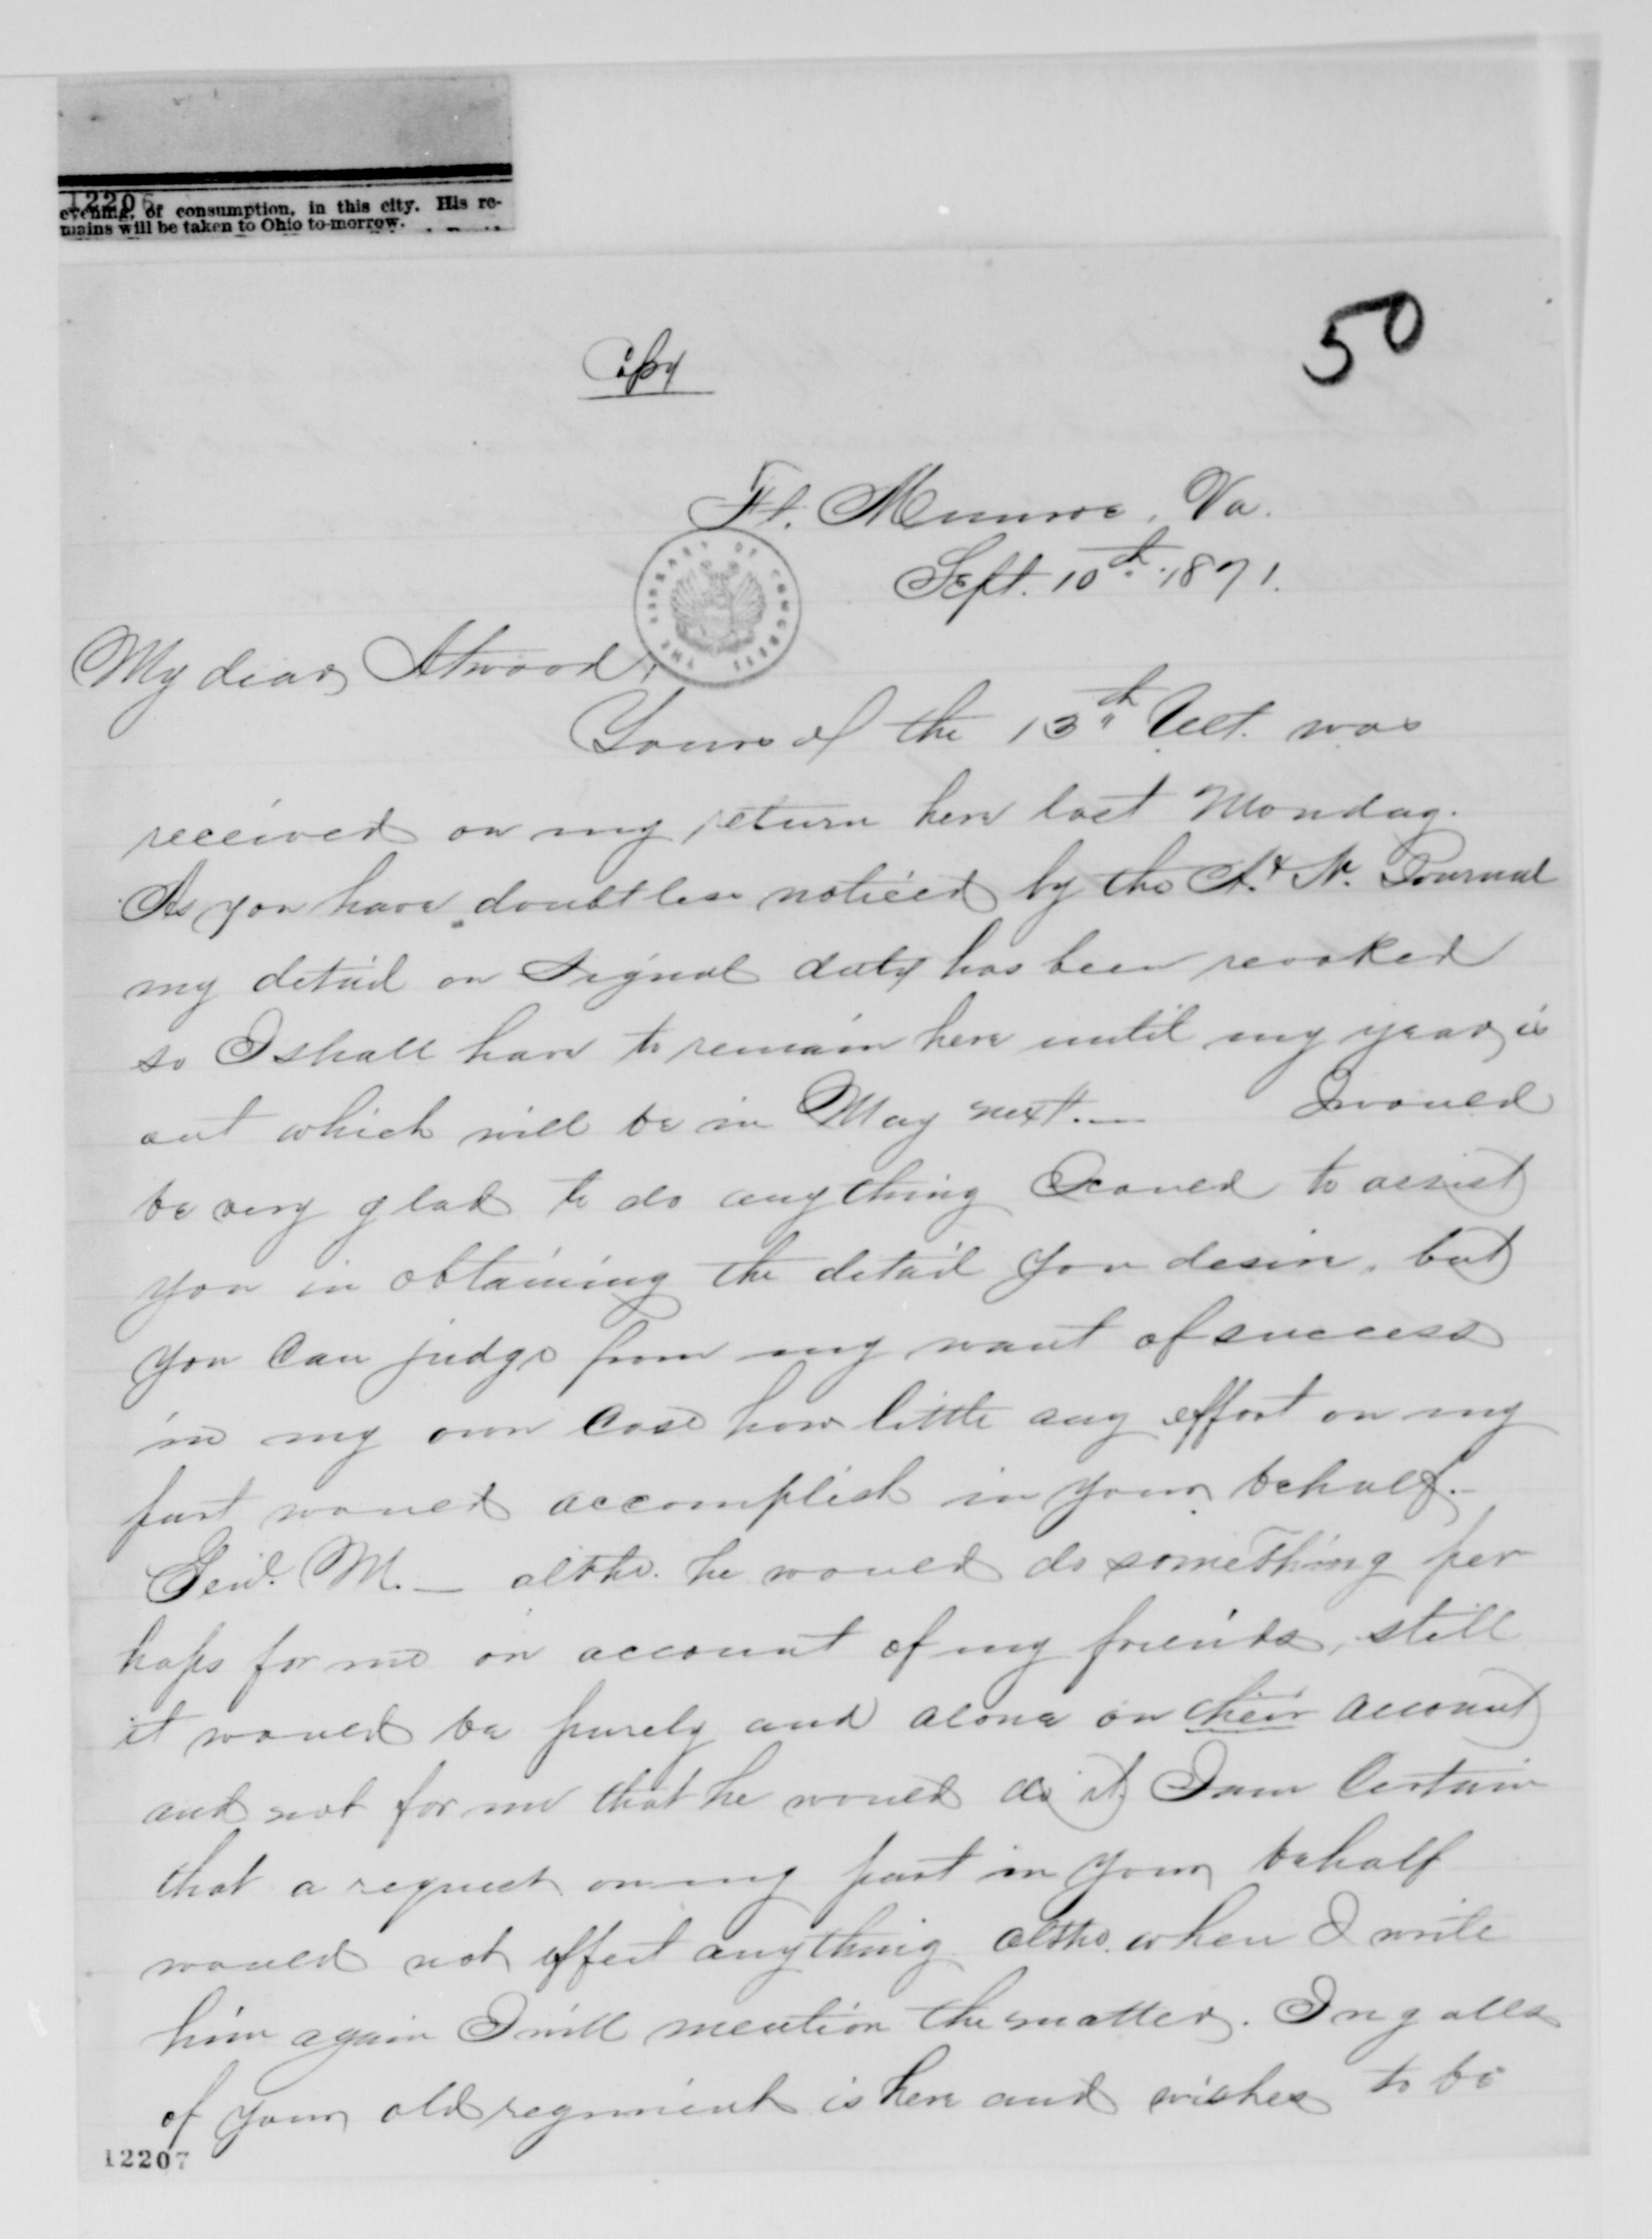 12206
evening, of consumption, in this city. His re-
mains will be taken to Ohio to-morrow.
50
Copy
Ft. Monroe, Va.
Sept. 10th 1871.
THE LIBRARY OF CONGRESS
My dear Atwood,
Yours of the 13th Ult. was
received on my return here last Monday.
As you have doubtless noticed by the A. & N. Journal
my detail on Signal duty has been revoked
so I shall have to remain here until my year is
out which will be in May next.— I would
be very glad to do anything I could to assist
you in obtaining the detail you desire, but
you can judge from my want of success
in my own case how little any effort on my
part would accomplish in your behalf.—
Genl. M.— altho. he would do something per
haps for me on account of my friends, still
it would be purely and alone on their account
and not for me that he would do it, I am certain
that a request on my part in your behalf
would not effect anything altho. when I write
him again I will mention the matter. Ingalls
of your old regiment is here and wishes to be
12207